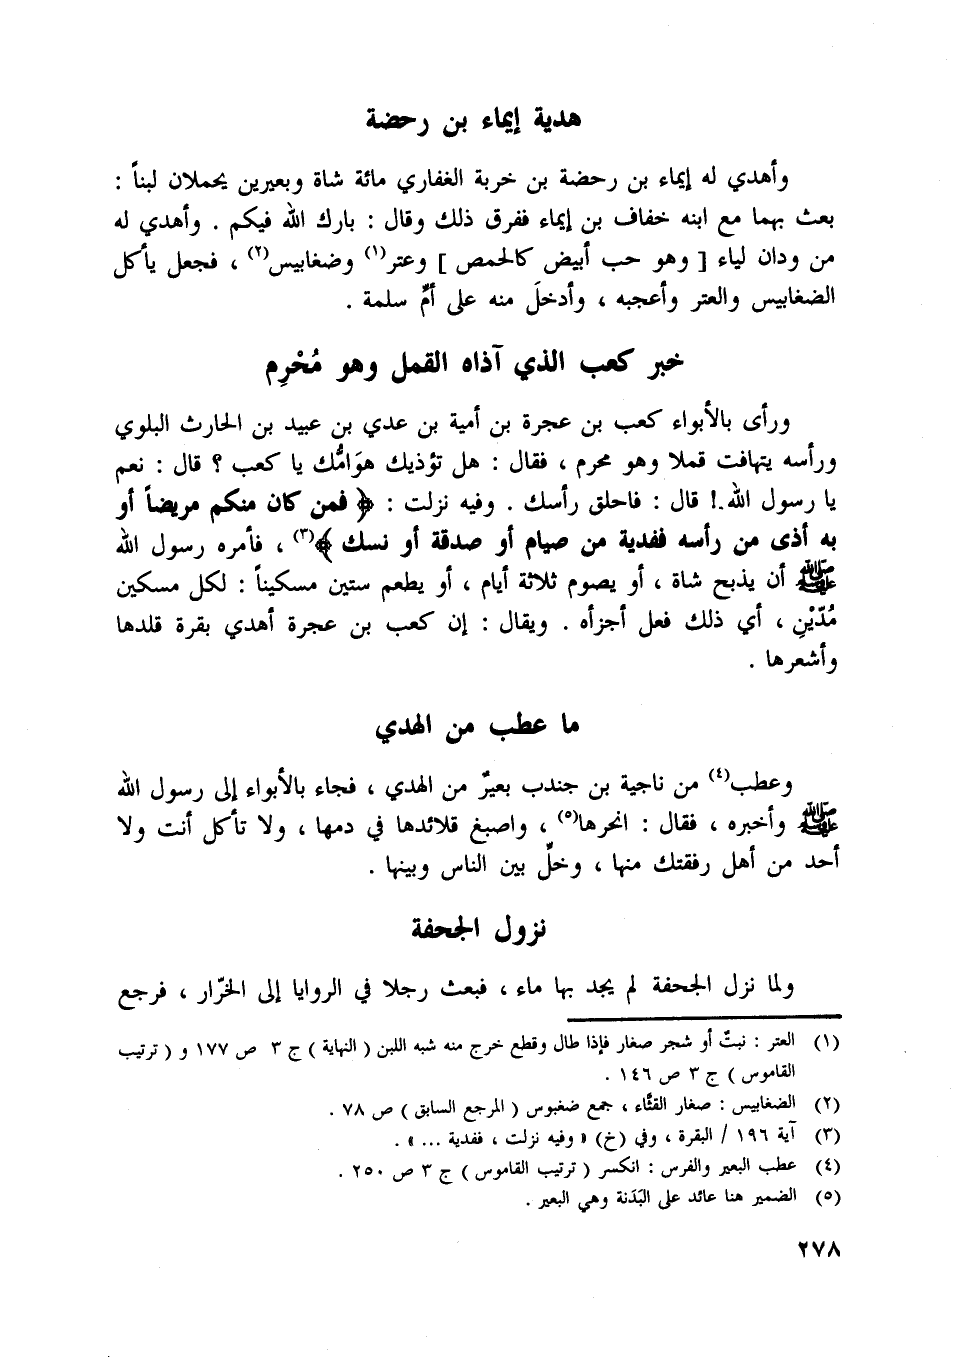 هدية إيماء بن رحضة
وأهدي له إيماء بن رحضة بن خربة الغفاري مائة شاة وبعيرين يحملان لبناً :
بعث بهما مع ابنه خفاف بن إيماء ففرق ذلك وقال : بارك الله فيكم . وأهدي له
من ودان لياء [ وهو حب أبيض كالحمص ] وعتر(١) وضغابيس(٢) ، فجعل يأكل
الضغابيس والعتر وأعجبه ، وأدخلَ منه على أمِّ سلمة .
خبر كعب الذي آذاه القمل وهو مُحْرِم
ورأى بالأبواء كعب بن عجرة بن أمية بن عدي بن عبيد بن الحارث البلوي
ورأسه يتهافت قملا وهو محرم ، فقال : هل تؤذيك هوَامُّك يا كعب ؟ قال : نعم
يا رسول الله.! قال : فاحلق رأسك . وفيه نزلت : ﴿ فمن كان منكم مريضاً أو
به أذى من رأسه ففدية من صيام أو صدقة أو نسك ﴾(٣) ، فأمره رسول الله
ﷺ أن يذبح شاة ، أو يصوم ثلاثة أيام ، أو يطعم ستين مسكيناً : لكل مسكين
مُدّيْنِ ، أي ذلك فعل أجزأه . ويقال : إن كعب بن عجرة أهدي بقرة قلدها
وأشعرها .
ما عطب من الهدي
وعطب(٤) من ناجية بن جندب بعيرٌ من الهدي ، فجاء بالأبواء إلى رسول الله
ﷺ وأخبره ، فقال : انحرها(٥) ، واصبغ قلائدها في دمها ، ولا تأكل أنت ولا
أحد من أهل رفقتك منها ، وخلِّ بين الناس وبينها .
نزول الجحفة
ولما نزل الجحفة لم يجد بها ماء ، فبعث رجلا في الروايا إلى الخرّار ، فرجع
(١) العتر : نبتٌ أو شجر صغار فإذا طال وقطع خرج منه شبه اللبن ( النهاية ) ج ٣ ص ١٧٧ و ( ترتيب
القاموس ) ج ٣ ص ١٤٦ .
(٢) الضغابيس : صغار القثَّاء ، جمع ضغبوس ( المرجع السابق ) ص ٧٨ .
(٣) آية ١٩٦ / البقرة ، وفي (خ) « وفيه نزلت ، ففدية ... » .
(٤) عطب البعير والفرس : انكسر ( ترتيب القاموس ) ج ٣ ص ٢٥٠ .
(٥) الضمير هنا عائد على البَدَنة وهي البعير .
٢٧٨